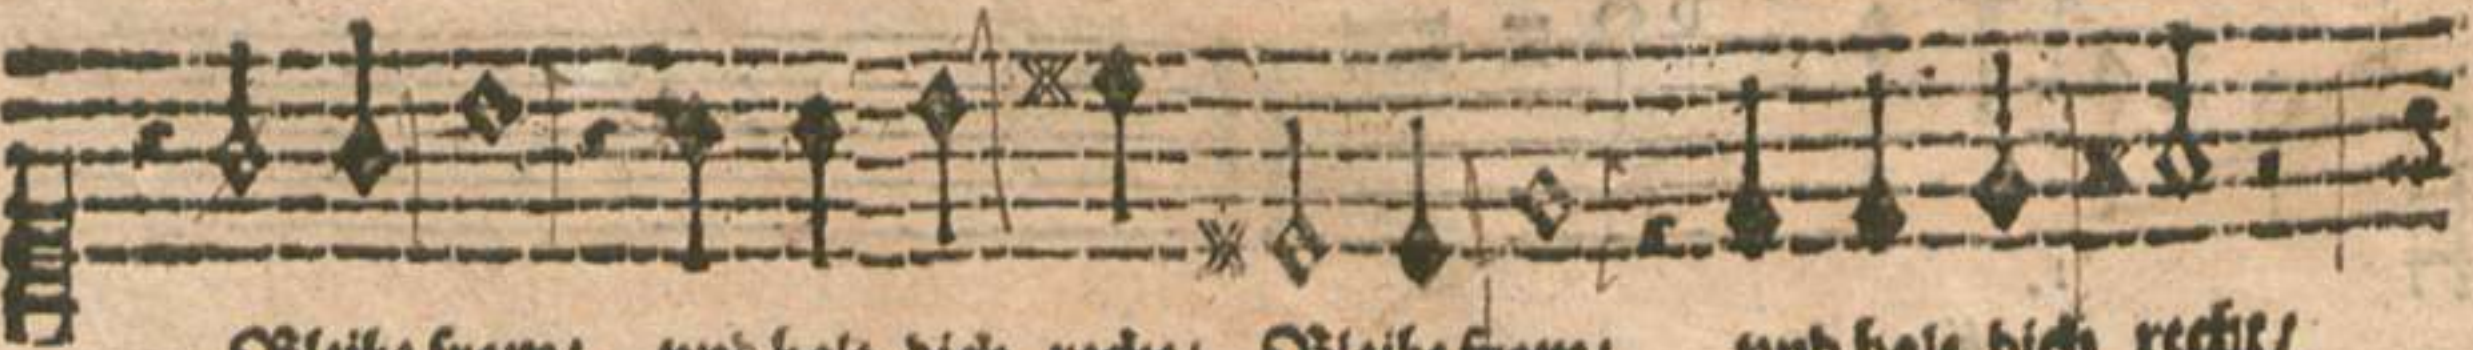 Bleibe fromm/ und halt dich recht/ Bleibe fromm/ und halt dich recht/